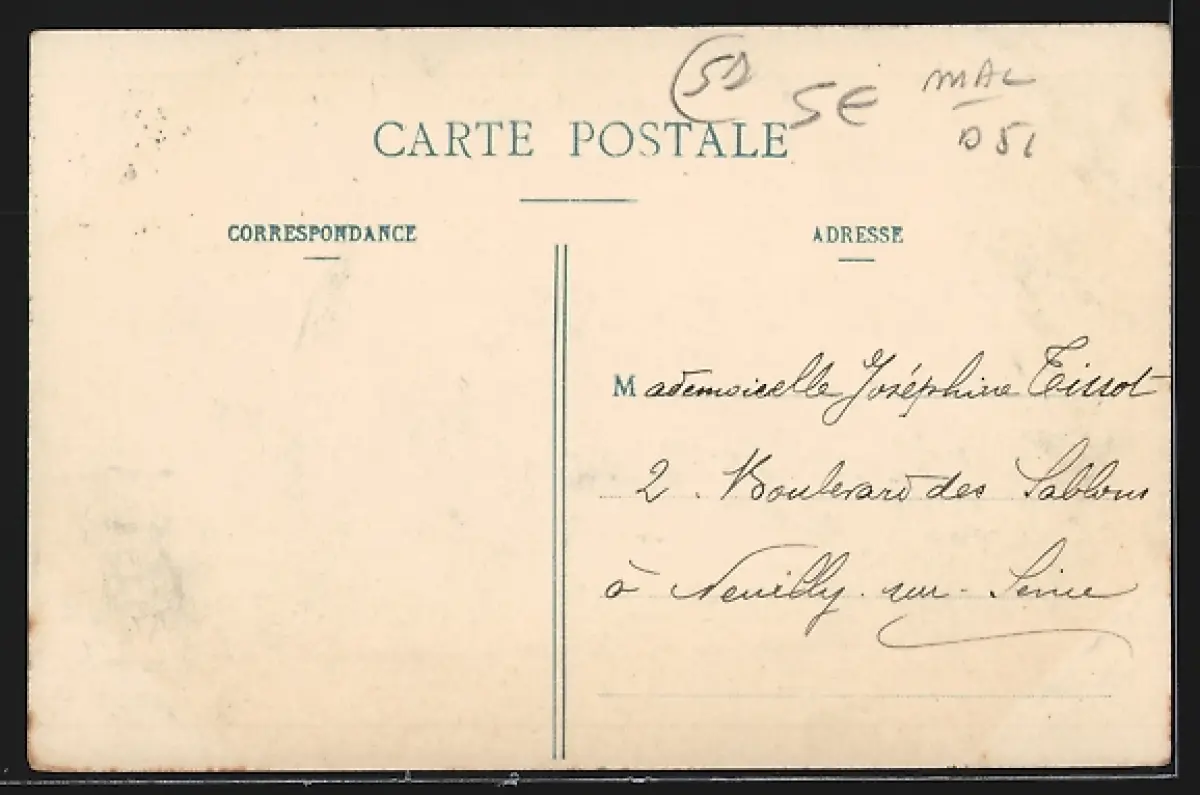 5D 5€ MAL
D 51
CARTE POSTALE
CORRESPONDANCE ADRESSE
Mademoiselle Joséphine Tissot
2. Boulevard des Sablons
à Neuilly-sur-Seine